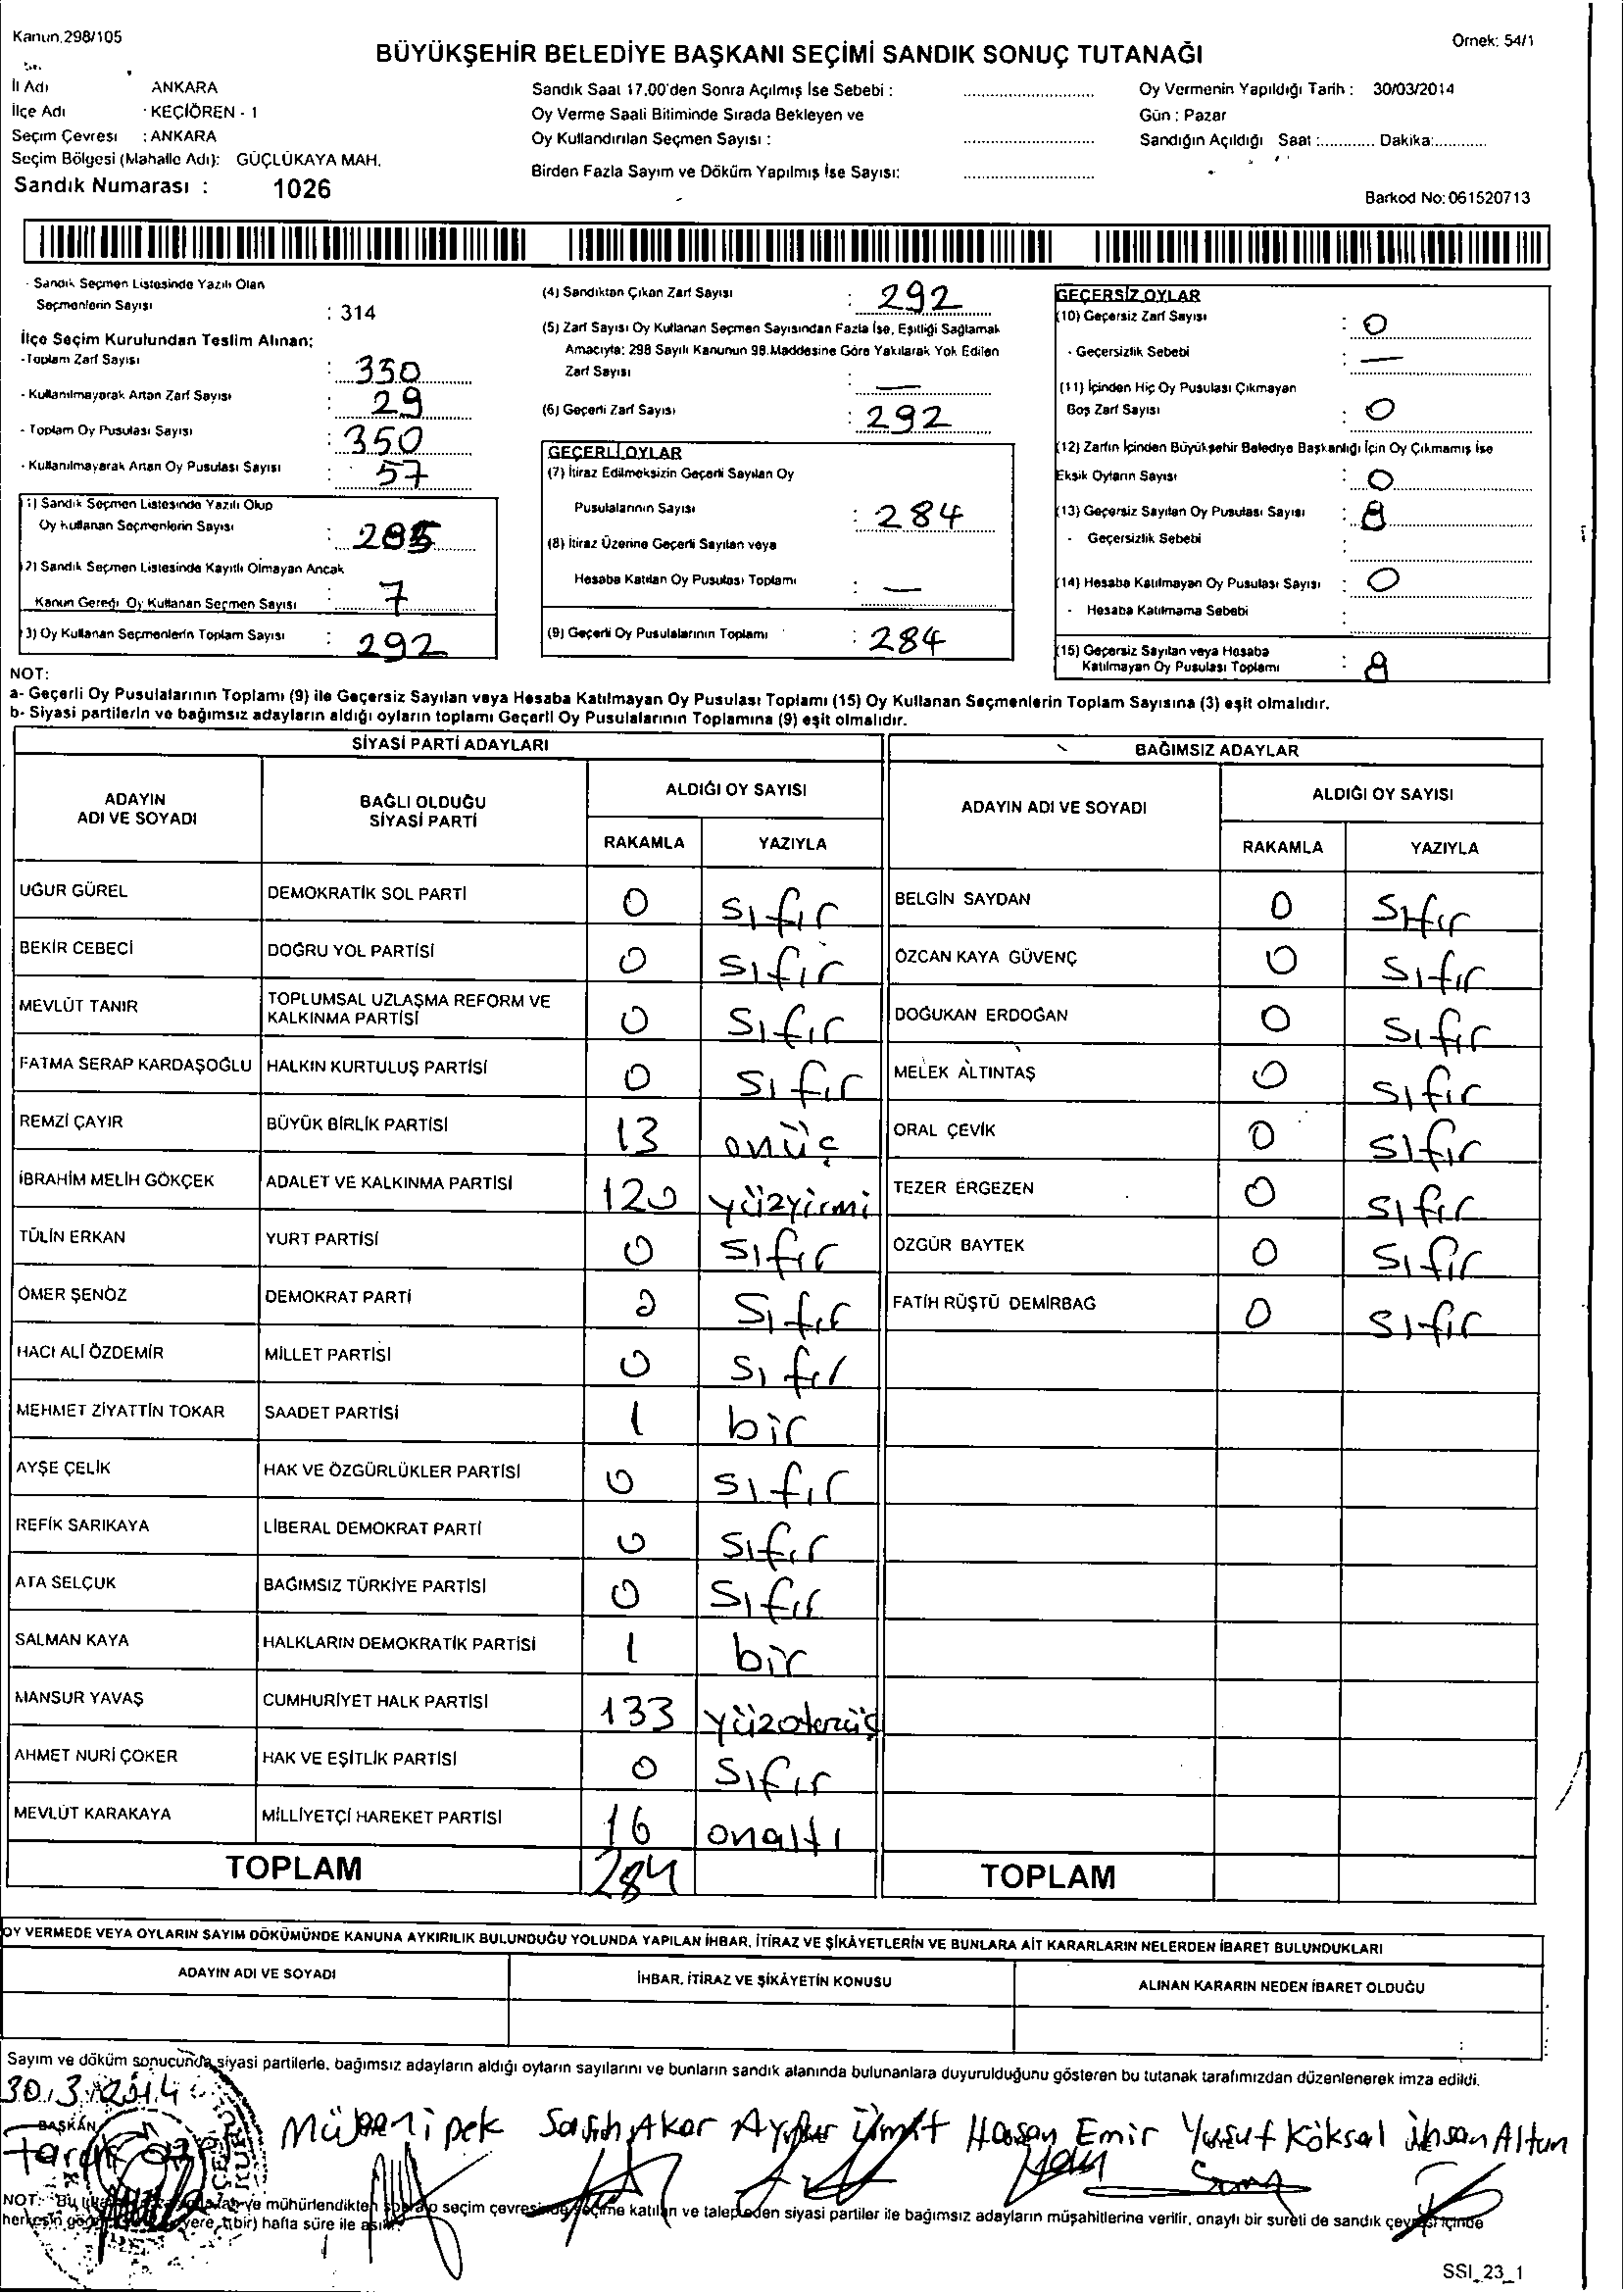 Kanun.298/105
Örnek: 54/1
BÜYÜKŞEHİR BELEDİYE BAŞKANI SEÇİMİ SANDIK SONUÇ TUTANAĞI
İl Adı : ANKARA
İlçe Adı : KEÇİÖREN - 1
Seçim Çevresi : ANKARA
Seçim Bölgesi (Mahalle Adı): GÜÇLÜKAYA MAH.
Sandık Numarası : 1026
Sandık Saat 17.00'den Sonra Açılmış İse Sebebi :
Oy Verme Saati Bitiminde Sırada Bekleyen ve
Oy Kullandırılan Seçmen Sayısı :
Birden Fazla Sayım ve Döküm Yapılmış İse Sayısı:
Oy Vermenin Yapıldığı Tarih : 30/03/2014
Gün : Pazar
Sandığın Açıldığı Saat :............ Dakika:............
Barkod No:061520713
- Sandık Seçmen Listesinde Yazılı Olan
Seçmenlerin Sayısı : 314
İlçe Seçim Kurulundan Teslim Alınan:
-Toplam Zarf Sayısı : 330
- Kullanılmayarak Artan Zarf Sayısı : 29
- Toplam Oy Pusulası Sayısı : 350
- Kullanılmayarak Artan Oy Pusulası Sayısı : 57
1) Sandık Seçmen Listesinde Yazılı Olup
Oy kullanan Seçmenlerin Sayısı : 285
2) Sandık Seçmen Listesinde Kayıtlı Olmayan Ancak
Kanun Gereği Oy Kullanan Seçmen Sayısı : 7
3) Oy Kullanan Seçmenlerin Toplam Sayısı : 292
(4) Sandıktan Çıkan Zarf Sayısı : 292
(5) Zarf Sayısı Oy Kullanan Seçmen Sayısından Fazla İse, Eşitliği Sağlamak
Amacıyla: 298 Sayılı Kanunun 98.Maddesine Göre Yakılarak Yok Edilen
Zarf Sayısı : —
(6) Geçerli Zarf Sayısı : 292
GEÇERLİ OYLAR
(7) İtiraz Edilmeksizin Geçerli Sayılan Oy
Pusulalarının Sayısı : 284
(8) İtiraz Üzerine Geçerli Sayılan veya
Hesaba Katılan Oy Pusulası Toplamı : —
(9) Geçerli Oy Pusulalarının Toplamı : 284
GEÇERSİZ OYLAR
(10) Geçersiz Zarf Sayısı : 0
- Geçersizlik Sebebi : —
(11) İçinden Hiç Oy Pusulası Çıkmayan
Boş Zarf Sayısı : 0
(12) Zarfın İçinden Büyükşehir Belediye Başkanlığı İçin Oy Çıkmamış İse
Eksik Oyların Sayısı : 0
(13) Geçersiz Sayılan Oy Pusulası Sayısı : 8
- Geçersizlik Sebebi :
(14) Hesaba Katılmayan Oy Pusulası Sayısı : 0
- Hesaba Katılmama Sebebi :
(15) Geçersiz Sayılan veya Hesaba
Katılmayan Oy Pusulası Toplamı : 8
NOT:
a- Geçerli Oy Pusulalarının Toplamı (9) ile Geçersiz Sayılan veya Hesaba Katılmayan Oy Pusulası Toplamı (15) Oy Kullanan Seçmenlerin Toplam Sayısına (3) eşit olmalıdır.
b- Siyasi partilerin ve bağımsız adayların aldığı oyların toplamı Geçerli Oy Pusulalarının Toplamına (9) eşit olmalıdır.
SİYASİ PARTİ ADAYLARI
ADAYIN ADI VE SOYADI
BAĞLI OLDUĞU SİYASİ PARTİ
ALDIĞI OY SAYISI
RAKAMLA YAZIYLA
UĞUR GÜREL DEMOKRATİK SOL PARTİ 0 sıfır
BEKİR CEBECİ DOĞRU YOL PARTİSİ 0 sıfır
MEVLÜT TANIR TOPLUMSAL UZLAŞMA REFORM VE KALKINMA PARTİSİ 0 sıfır
FATMA SERAP KARDAŞOĞLU HALKIN KURTULUŞ PARTİSİ 0 sıfır
REMZİ ÇAYIR BÜYÜK BİRLİK PARTİSİ 13 onüç
İBRAHİM MELİH GÖKÇEK ADALET VE KALKINMA PARTİSİ 120 yüzyirmi
TÜLİN ERKAN YURT PARTİSİ 0 sıfır
ÖMER ŞENÖZ DEMOKRAT PARTİ 0 sıfır
HACI ALİ ÖZDEMİR MİLLET PARTİSİ 0 sıfır
MEHMET ZİYATTİN TOKAR SAADET PARTİSİ 1 bir
AYŞE ÇELİK HAK VE ÖZGÜRLÜKLER PARTİSİ 0 sıfır
REFİK SARIKAYA LİBERAL DEMOKRAT PARTİ 0 sıfır
ATA SELÇUK BAĞIMSIZ TÜRKİYE PARTİSİ 0 sıfır
SALMAN KAYA HALKLARIN DEMOKRATİK PARTİSİ 1 bir
MANSUR YAVAŞ CUMHURİYET HALK PARTİSİ 133 yüzotuzüç
AHMET NURİ ÇOKER HAK VE EŞİTLİK PARTİSİ 0 sıfır
MEVLÜT KARAKAYA MİLLİYETÇİ HAREKET PARTİSİ 16 onaltı
TOPLAM 284
BAĞIMSIZ ADAYLAR
ADAYIN ADI VE SOYADI
ALDIĞI OY SAYISI
RAKAMLA YAZIYLA
BELGİN SAYDAN 0 sıfır
ÖZCAN KAYA GÜVENÇ 0 sıfır
DOĞUKAN ERDOĞAN 0 sıfır
MELEK ALTINTAŞ 0 sıfır
ORAL ÇEVİK 0 sıfır
TEZER ERGEZEN 0 sıfır
ÖZGÜR BAYTEK 0 sıfır
FATİH RÜŞTÜ DEMİRBAĞ 0 sıfır
TOPLAM
OY VERMEDE VEYA OYLARIN SAYIM DÖKÜMÜNDE KANUNA AYKIRILIK BULUNDUĞU YOLUNDA YAPILAN İHBAR, İTİRAZ VE ŞİKÂYETLERİN VE BUNLARA AİT KARARLARIN NELERDEN İBARET BULUNDUKLARI
ADAYIN ADI VE SOYADI
İHBAR, İTİRAZ VE ŞİKÂYETİN KONUSU
ALINAN KARARIN NEDEN İBARET OLDUĞU
Sayım ve döküm sonucunda siyasi partilerle, bağımsız adayların aldığı oyların sayılarını ve bunların sandık alanında bulunanlara duyurulduğunu gösteren bu tutanak tarafımızdan düzenlenerek imza edildi.
30.3.2014
BAŞKAN
Tarık
ipek Akar Ümit Hasan Emir Yusuf Köksal İhsan Altun
NOT: Bu ve mühürlendikten seçim çevresinde seçime katılan ve talep eden siyasi partiler ile bağımsız adayların müşahitlerine verilir, onaylı bir sureti de sandık çevresi içinde
herkesin yere, (bir) hafta süre ile asılır.
SSI_23_1